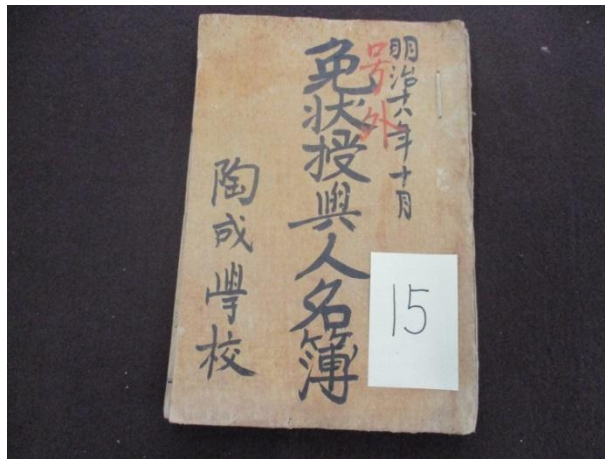 明治十八年十月
号外
免状授與人名簿
陶成學校
15